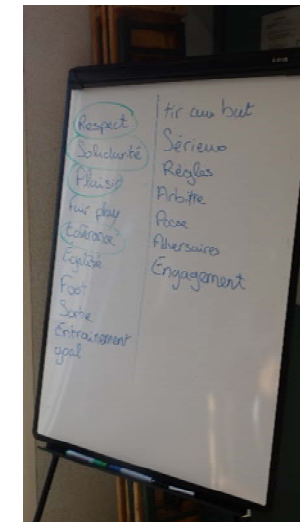 Respect
Solidarité
Plaisir
Fair play
Tolérance
Égalité
Foot
Sortie
Entrainement
goal
tir aux but
Sérieux
Règles
Arbitre
Passe
Adversaires
Engagement